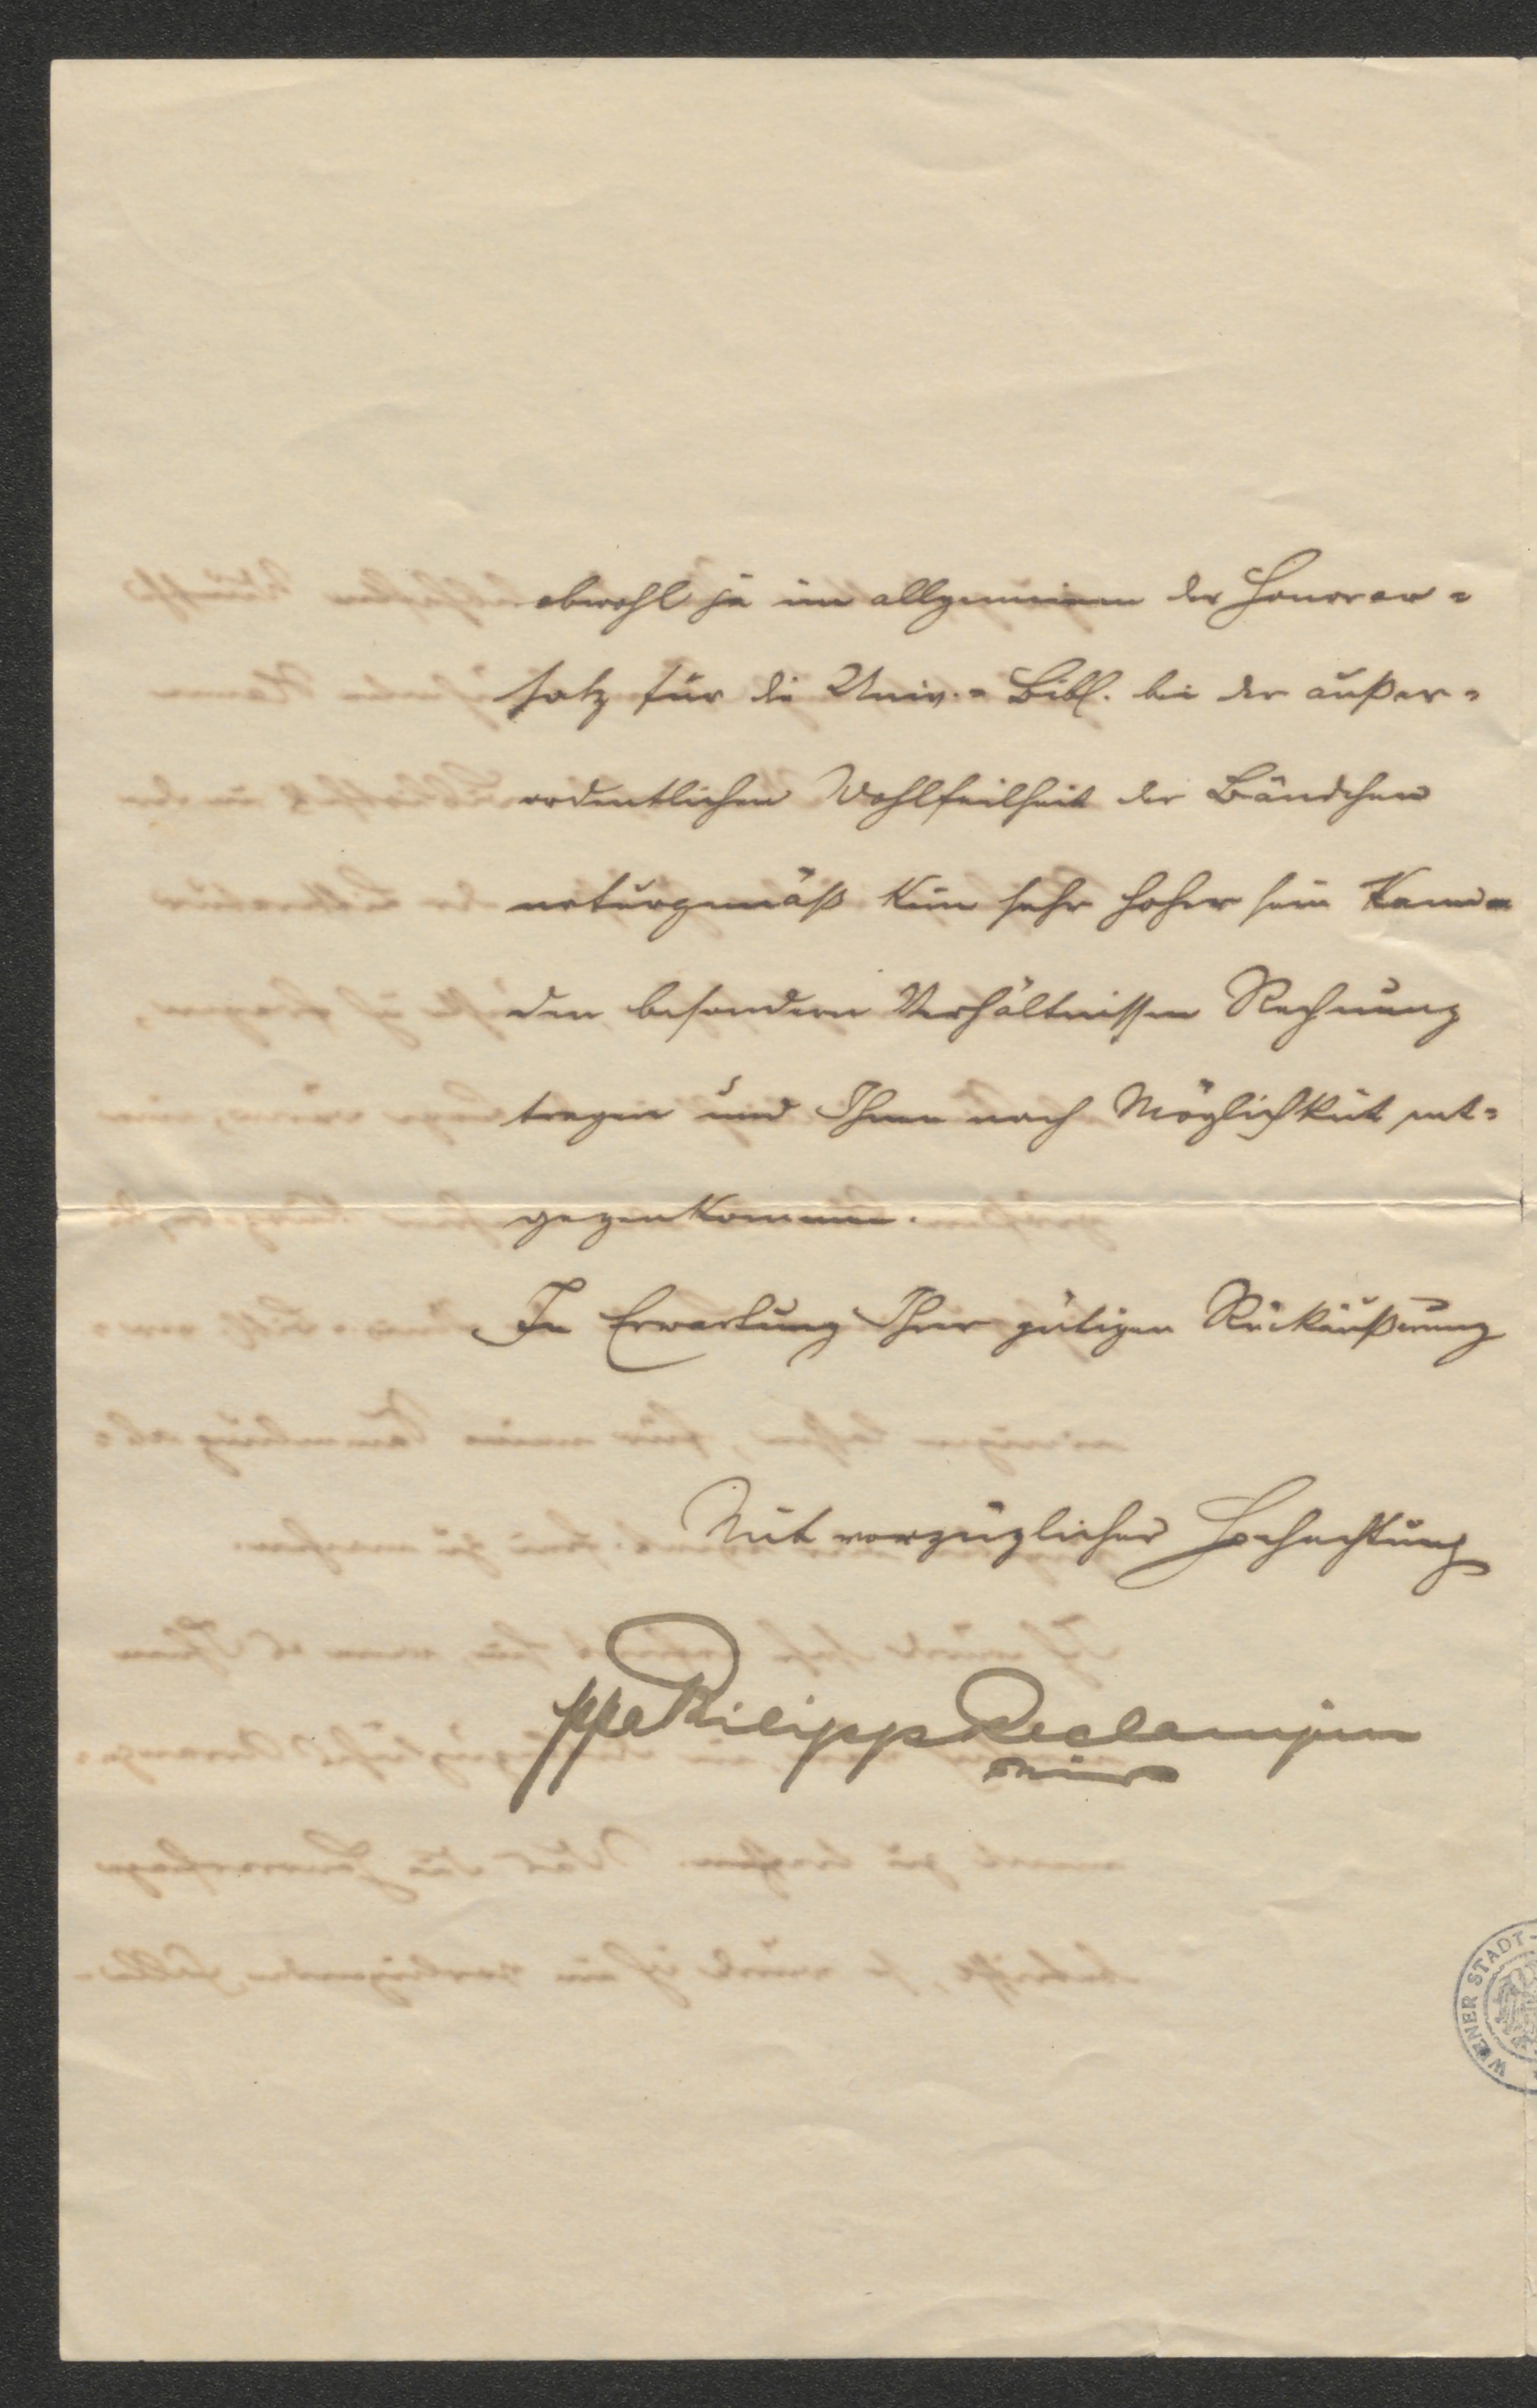 obwohl ja im allgemeinen der Honorar=
satz für die Univ.=Bibl. bei der außer=
ordentlichen Wohlfeilheit der Bändchen
naturgemäß kein sehr hoher sein kann –
den besondern Verhältnissen Rechnung
tragen und Ihnen nach Möglichkeit ent=
gegenkommen.
In Erwartung Ihrer gütigen Rückäußerung
Mit vorzüglicher Hochachtung
ppa Philipp Reclam jun
WIENER STADT-